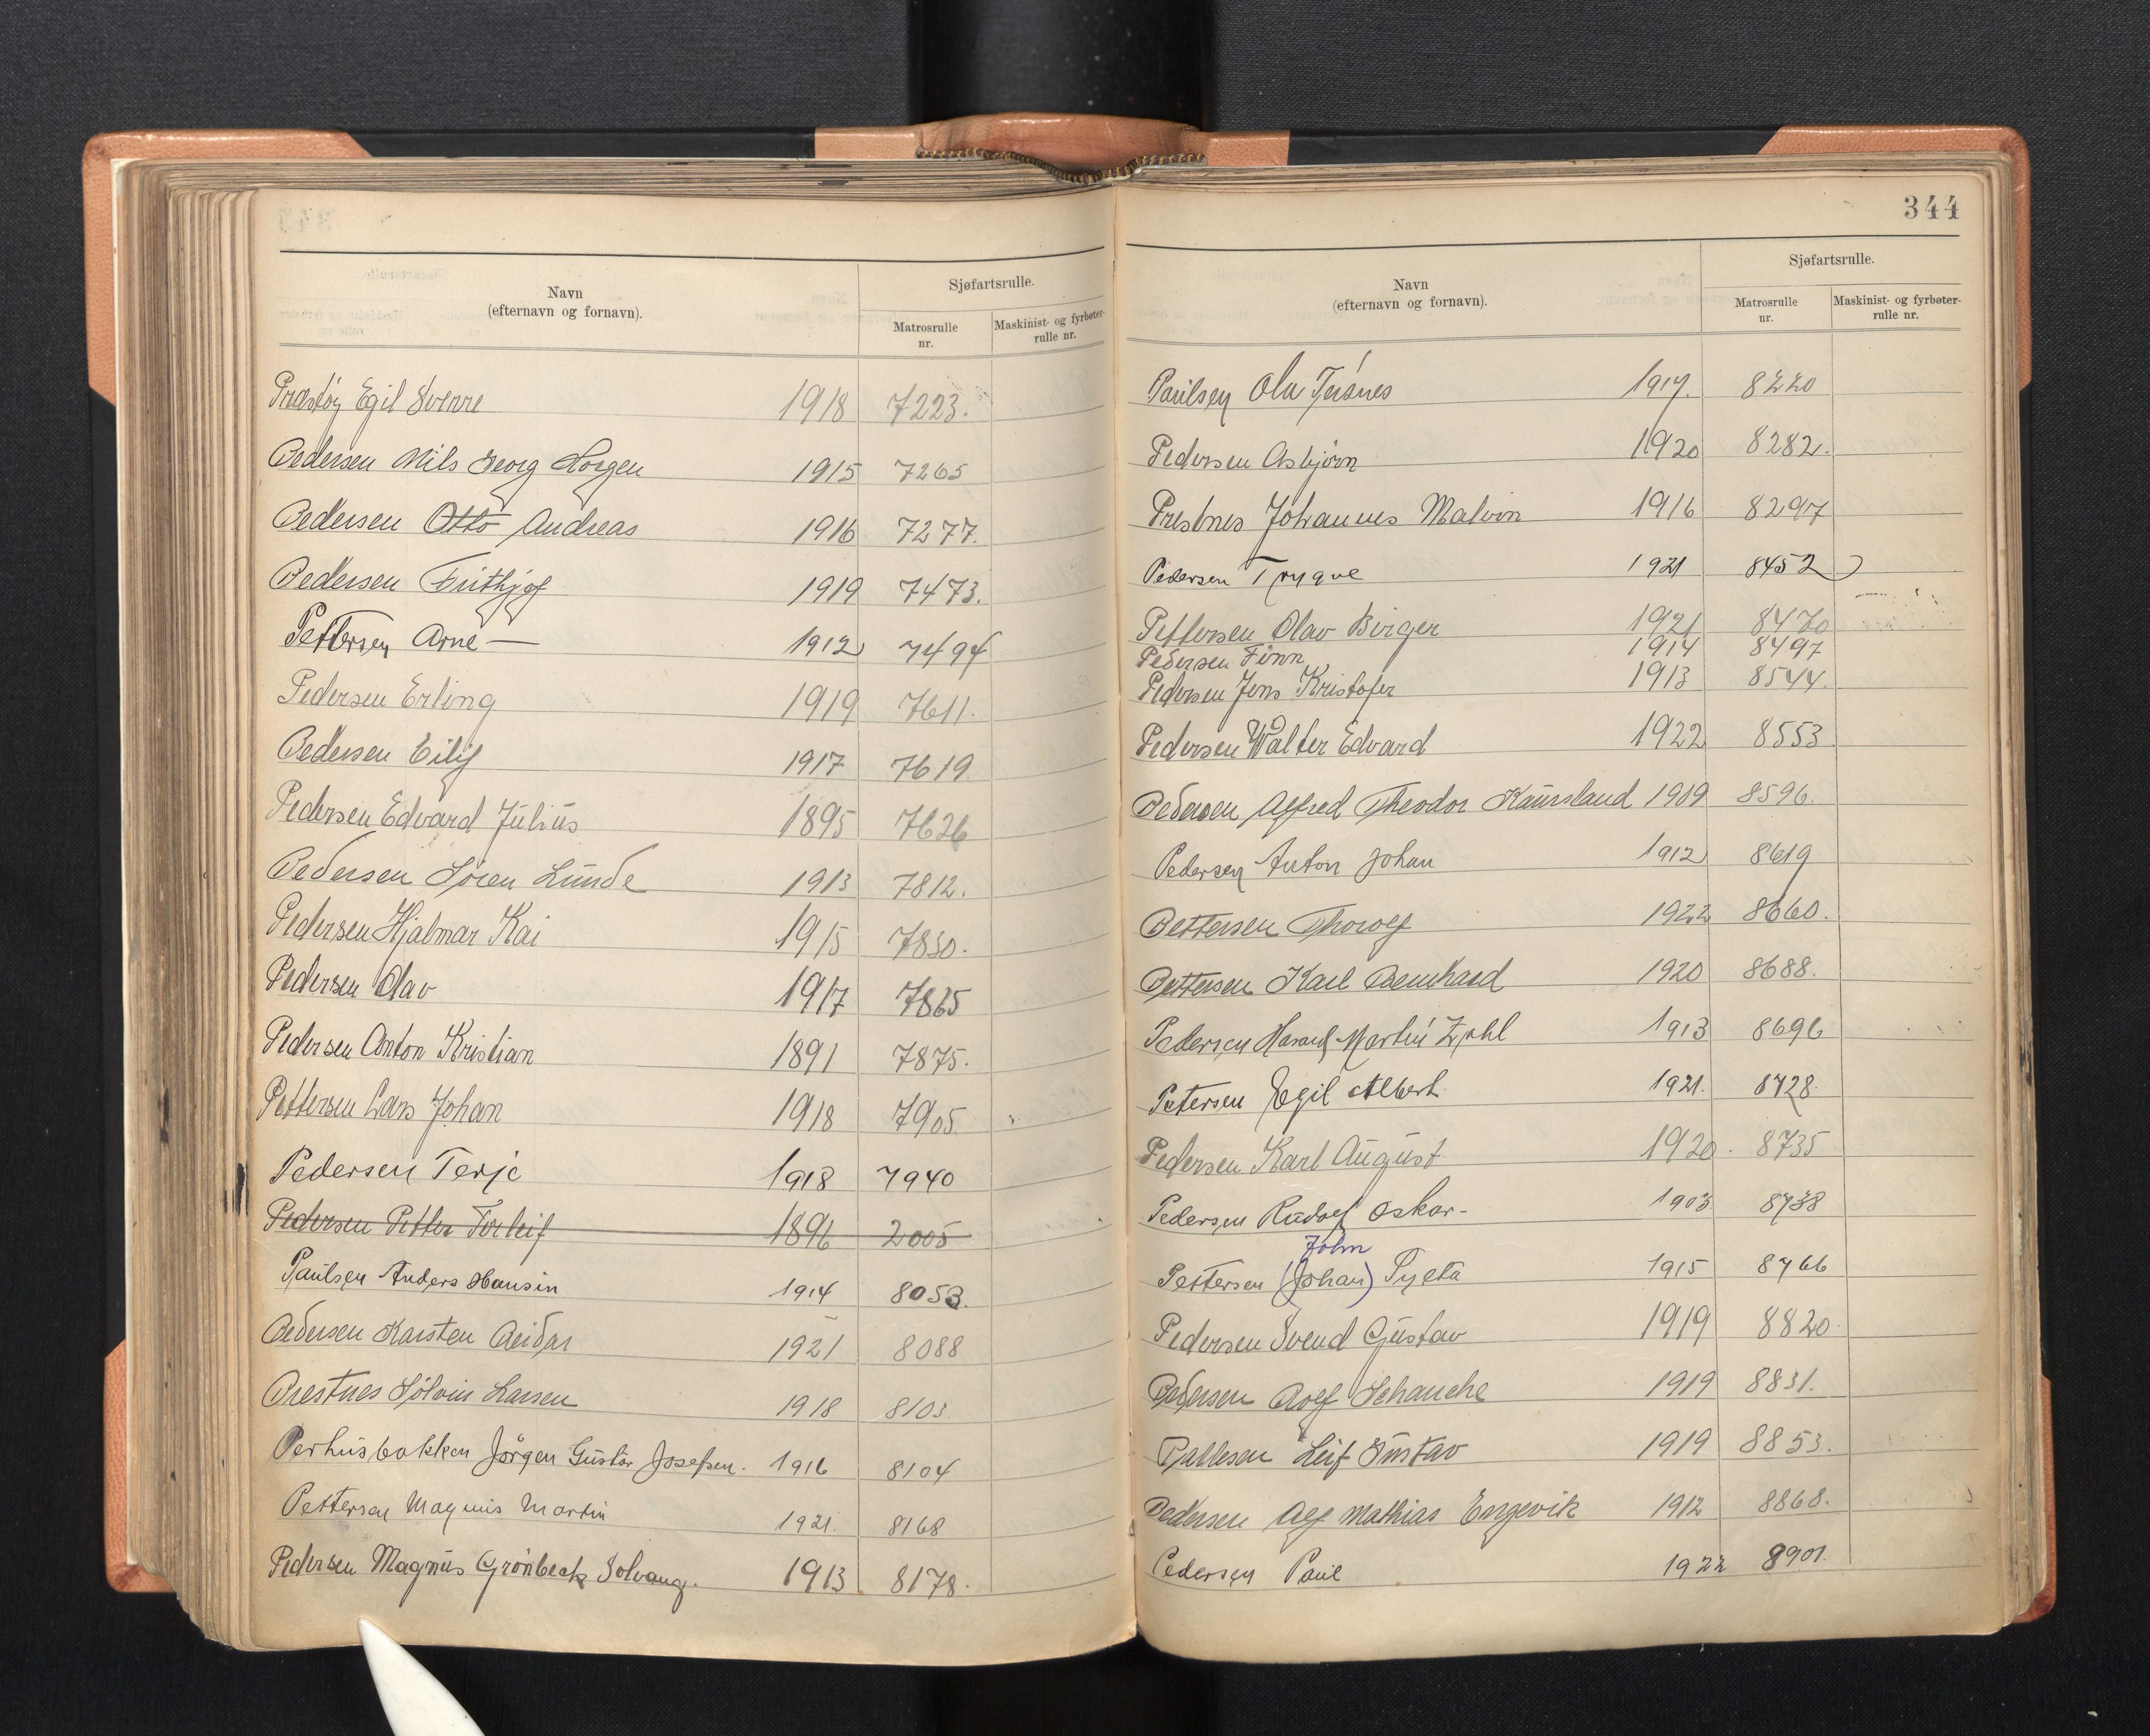 Navn
(efternavn og fornavn).
Sjøfartsrulle.
Matrosrulle
nr.
Maskinist- og fyrbøter-
rulle nr.
Præstøy Egil Sverre 1918 7223.
Pedersen Nils Georg Horgen 1915 7265
Pedersen Otto Andreas 1916 7277.
Pedersen Frithjof 1919 7473.
Pettersen Arne — 1912 7494
Pedersen Erling 1919 7611.
Pedersen Eilif 1917 7619.
Pedersen Edvard Julius 1895 7626
Pedersen Søren Lunde 1913 7812.
Pedersen Hjalmar Kai 1915 7830.
Pedersen Olav 1917 7865
Pedersen Anton Kristian 1891 7875.
Pettersen Lars Johan 1918 7905.
Pedersen Terje 1918 7940
Pedersen Petter Torleif 1896 2005
Paulsen Anders Hansin 1914 8053.
Pedersen Karsten Reidar 1921 8088
Prestnes Sølvin Larsen 1918 8103.
Perhusbakken Jørgen Gustav Josefsen. 1916 8104
Pettersen Magnus Martin 1921. 8168
Pedersen Magnus Grønbeck Solvang. 1913 8178.
344
Navn
(efternavn og fornavn).
Sjøfartsrulle.
Matrosrulle
nr.
Maskinist- og fyrbøter-
rulle nr.
Paulsen Ola 1917. 8220
Pedersen Asbjørn 1920 8282.
Prestnes Johannes Malvin 1916 8297
Pedersen Trygve 1921 8452
Pettersen Olav Birger 1921 8470
Pedersen Finn 1914 8497
Pedersen Jens Kristofer 1913 8544.
Pedersen Walter Edvard 1922 8553
Pedersen Alfred Theodor Kaursland 1909 8596.
Pedersen Anton Johan 1912 8619
Pettersen Thorolf 1922 8660.
Pettersen Karl Bernhard 1920 8688.
Pedersen Harald Martin Zahl 1913 8696
Petersen Egil Albert 1921. 8728.
Pedersen Karl August 1920. 8735
Pedersen Rudolf Oskar- 1903. 8738
John
Pettersen (Johan) 1915 8766
Pedersen Svend Gustav 1919 8820.
Pedersen Rolf Schanche 1919 8831.
Pallesen Leif Gustav 1919 8853.
Pedersen Alf Mathias Engevik 1912 8868.
Pedersen Paul 1922 8901.